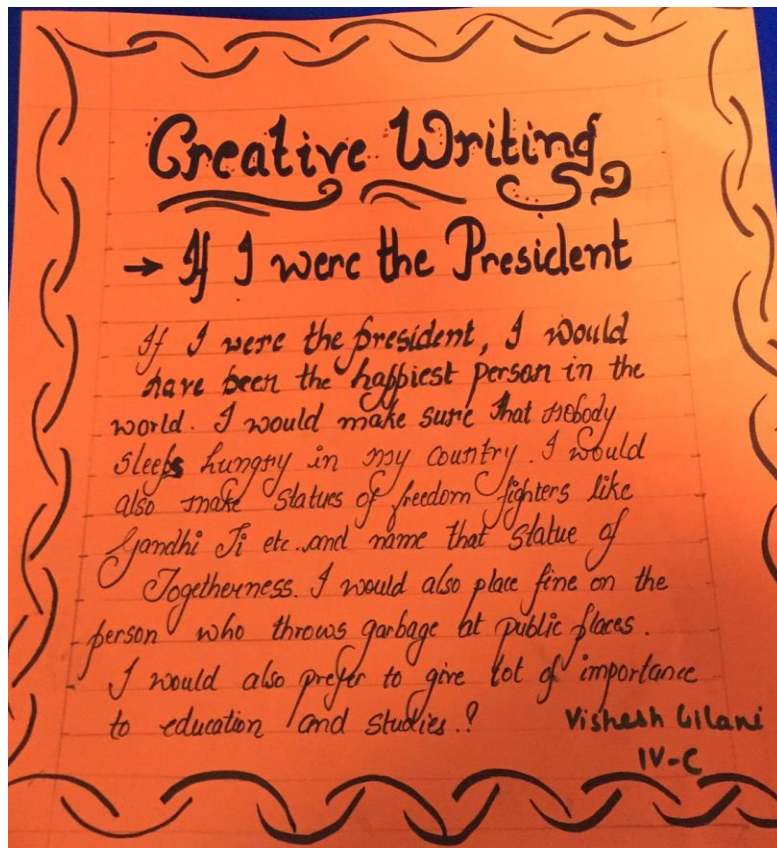 Creative Writing
→ If I were the President
If I were the president, I would
have been the happiest person in the
world. I would make sure that nobody
sleeps hungry in my country. I would
also make statues of freedom fighters like
Gandhi Ji etc..and name that statue of
Togetherness. I would also place fine on the
person who throws garbage at public places.
I would also prefer to give lot of importance
to education and studies.!
Vishesh Gilani
IV-C